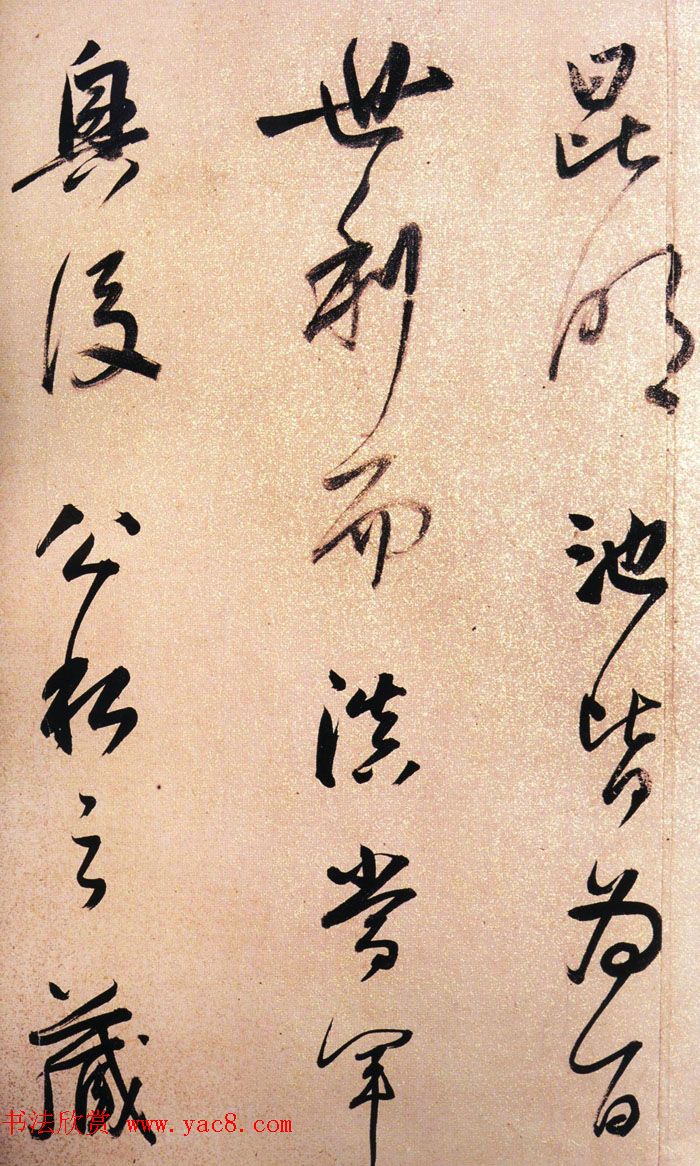 昆明池皆為百
世利而滇當軍
興後公私之藏
书法欣赏 www.yac8.com